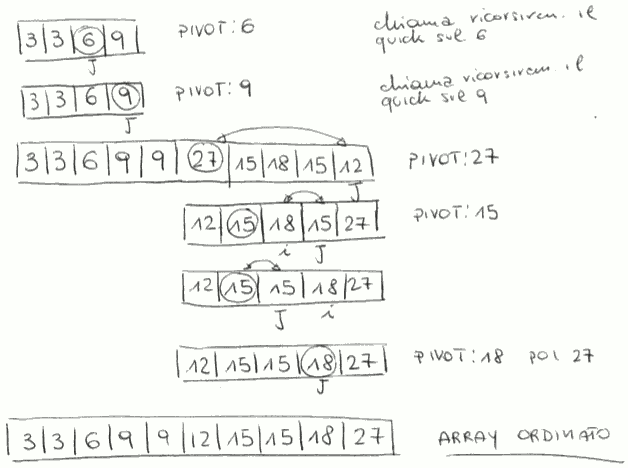 |3|3|6|9| PIVOT: 6 chiama ricorsivam. il
J quick sul 6
|3|3|6|9| PIVOT: 9 chiama ricorsivam. il
J quick sul 9
|3|3|6|9|9|27|15|18|15|12| PIVOT: 27
J
|12|15|18|15|27| PIVOT: 15
i J
|12|15|15|18|27|
J i
|12|15|15|18|27| PIVOT: 18 POI 27
J
|3|3|6|9|9|12|15|15|18|27| ARRAY ORDINATO